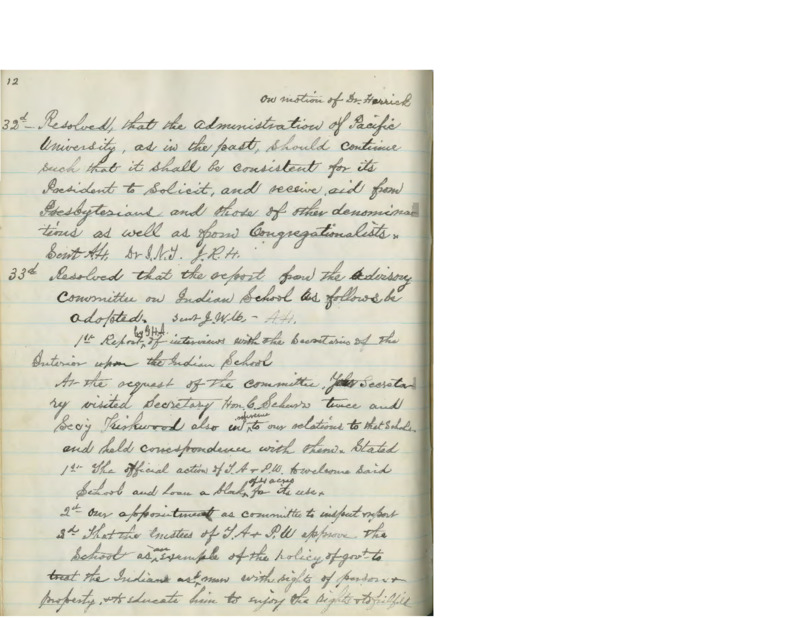 12
on motion of Dr. Herrick
32d - Resolved, that the administration of Pacific
University, as in the past, should continue
such that it shall be consistent for its
President to Solicit, and receive aid from
Presbyterians and those of other denomina
tions as well as from Congregationalists.
Sent A.H. Dr I.N.T. J.R.H.
33d Resolved that the report from the advisory
committee on Indian School as follows be
adopted. sent J.W.M. - A.H.
1st Report, by J.H.A. of interviews with the Secretaries of the
Interior upon the Indian School
At the request of the committee, Secreta
ry visited Secretary Hon. C. Schurz twice and
Sec'y Kirkwood also in reference to our relations to that School.
and held correspondence with them. Stated
1st The official action of T.A & P.U. to welcome said
School and loan a block of 4 acres for its use.
2d our appointment as committee to inspect & report
3d That the trustees of T.A & P.U approve the
School as an example of the policy of gov't to
treat the Indians as men with rights of person &
property, & to educate him to enjoy the rights & to fulfill